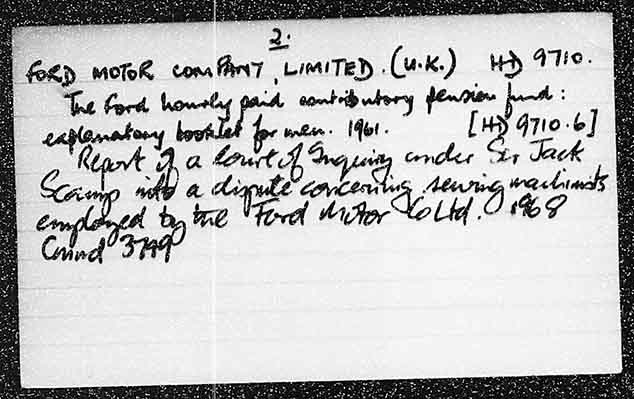 2.
FORD MOTOR COMPANY, LIMITED. (U.K.) HD 9710.
The Ford hourly paid contributory pension fund:
explanatory booklet for men. 1961. [HD 9710.6]
Report of a Court of Inquiry under Sir Jack
Scamp into a dispute concerning sewing machinists
employed by the Ford Motor Co Ltd. 1968
Cmnd 3749